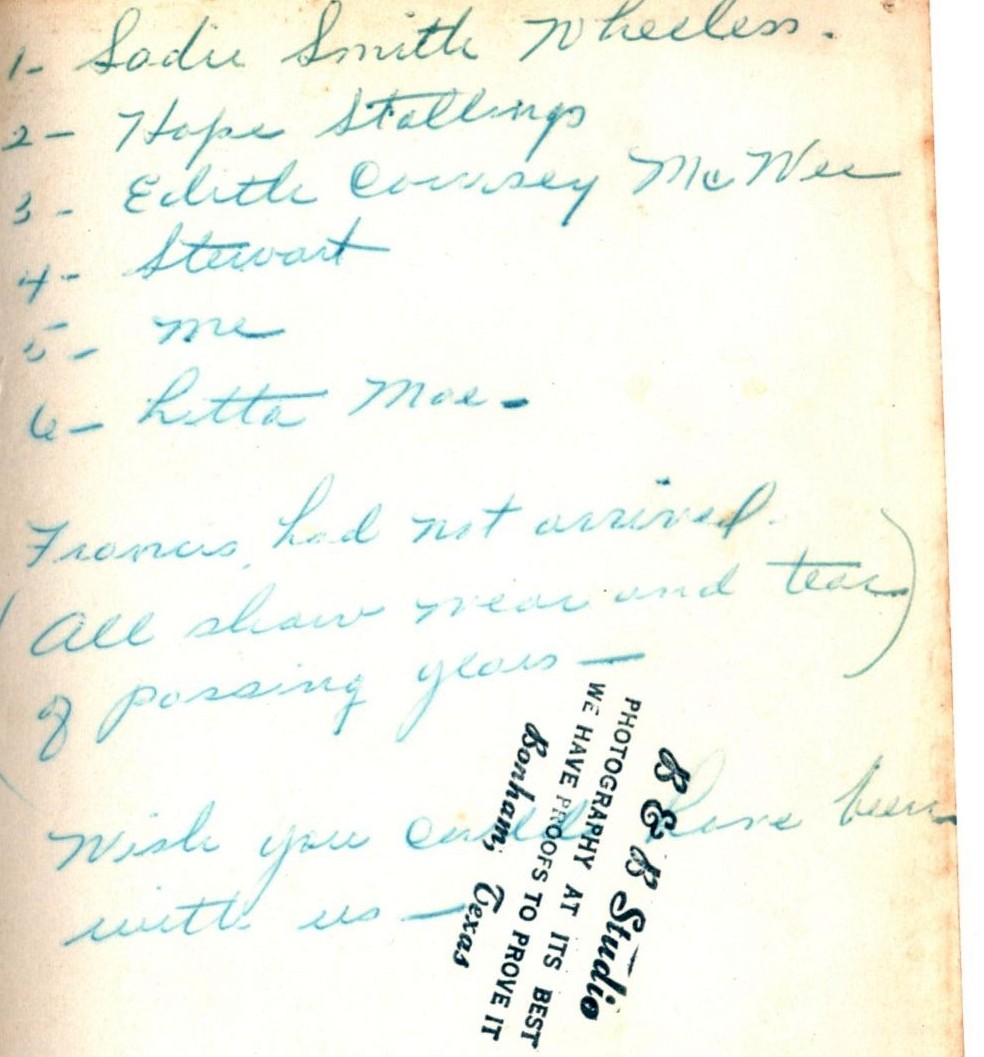 1- Sadie Smith Wheeless.
2- Hope Stallings
3- Edith Coursey McWee
4- Stewart
5- Me
6- Letta Mae-
Francis, had not arrived.
(All show wear and tear)
of passing years —
Wish you could have been
with us —
B & B Studio
PHOTOGRAPHY AT ITS BEST
WE HAVE PROOFS TO PROVE IT
Bonham, Texas